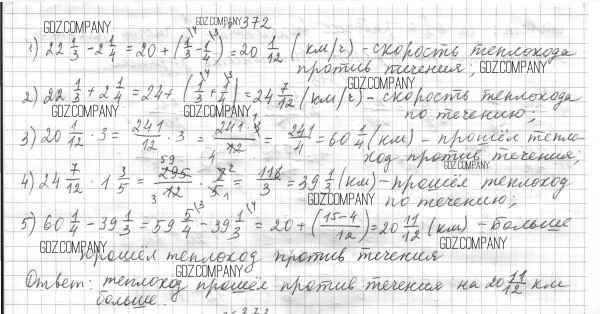 GDZ.COMPANY 1372
1) 22 1/3 - 2 1/4 = 20 + (1/3 - 1/4) = 20 1/12 (км/ч) - скорость теплохода
против течения; GDZ.COMPANY
2) 22 1/3 + 2 1/4 = 24 + (1/3 + 1/4) = 24 7/12 (км/ч) - скорость теплохода
GDZ.COMPANY GDZ.COMPANY GDZ.COMPANY по течению;
3) 20 1/12 · 3 = 241/12 · 3 = 241·3/12 = 241/4 = 60 1/4 (км) - прошёл тепло-
ход против течения; GDZ.COMPANY
4) 24 7/12 · 1 3/5 = 295/12 · 8/5 = 118/3 = 39 1/3 (км) - прошёл теплоход
GDZ.COMPANY GDZ.COMPANY по течению;
5) 60 1/4 - 39 1/3 = 59 5/4 - 39 1/3 = 20 + (15-4/12) = 20 11/12 (км) - больше
GDZ.COMPANY GDZ.COMPANY
прошёл теплоход против течения
GDZ.COMPANY
Ответ: теплоход прошёл против течения на 20 11/12 км
больше.